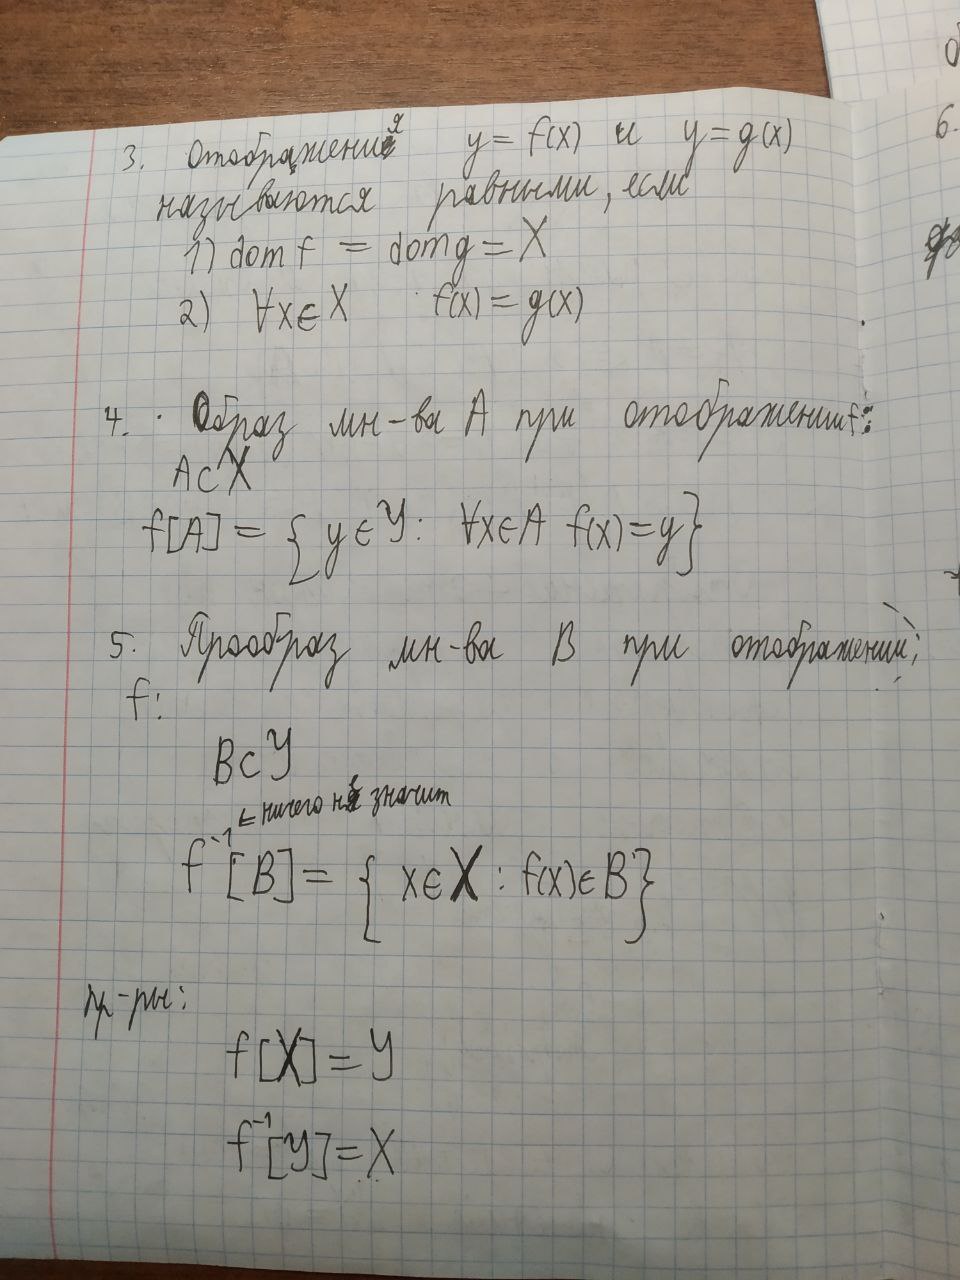 3. Отображения y = f(x) и y = g(x)
называются равными, если
1) dom f = dom g = X
2) ∀x∈X f(x) = g(x)
4. Образ мн-ва A при отображении f:
A⊂X
f[A] = { y∈Y : ∀x∈A f(x)=y}
5. Прообраз мн-ва B при отображении
f:
B⊂Y
← ничего не значит
f⁻¹[B] = { x∈X : f(x)∈B}
пр-ры:
f[X] = Y
f⁻¹[Y] = X
6.